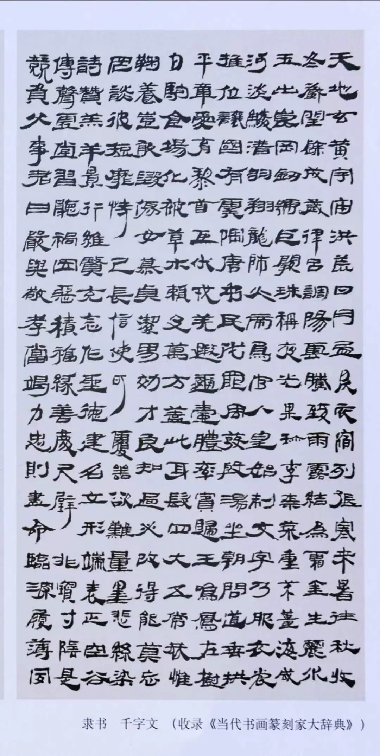 天地玄黃宇宙洪荒日月盈昃辰宿列張寒來暑往秋收
冬藏閏餘成歲律呂調陽雲騰致雨露結為霜金生麗水
玉出崑岡劍號巨闕珠稱夜光果珍李柰菜重芥薑海鹹
河淡鱗潛羽翔龍師火帝鳥官人皇始制文字乃服衣裳
推位讓國有虞陶唐弔民伐罪周發殷湯坐朝問道垂拱
平章愛育黎首臣伏戎羌遐邇壹體率賓歸王鳴鳳在樹
白駒食場化被草木賴及萬方蓋此身髮四大五常恭惟
鞠養豈敢毀傷女慕貞潔男効才良知過必改得能莫忘
罔談彼短靡恃己長信使可覆器欲難量墨悲絲染
詩贊羔羊景行維賢克念作聖德建名立形端表正空谷
傳聲虛堂習聽禍因惡積福緣善慶尺璧非寶寸陰是
競資父事君曰嚴與敬孝當竭力忠則盡命臨深履薄夙
隶书 千字文 （收录《当代书画篆刻家大辞典》）